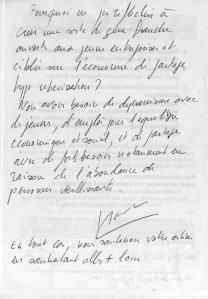 Pourquoi ne pas réfléchir à
créer une sorte de zone franche
ouverte aux jeunes entreprises et
ciblée sur l'économie de partage
type uberisation ?
Nous avons besoin de dynamisme avec
des jeunes, d'emploi pour l'équilibre
économique et social, et de partage
avec de forts besoins notamment en
raison de l'abondance de
personnes vieillissantes.
En tout cas, nous soutenons votre action
en souhaitant aller + loin